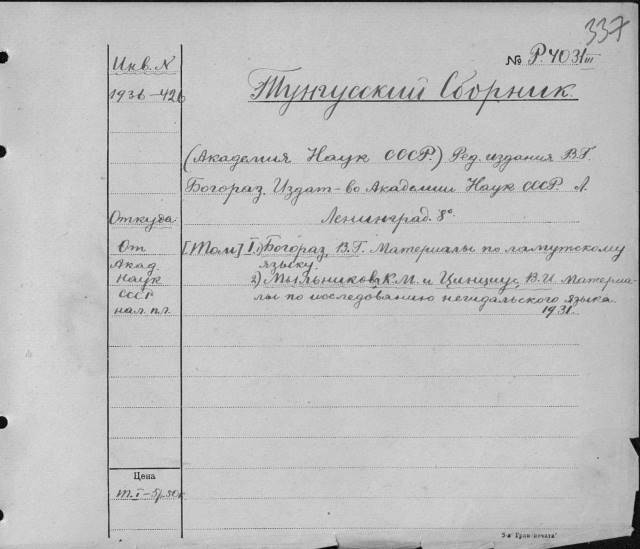 337
№ Р.4031 III
Инв. N
1936-426
Тунгусский Сборник.
(Академия Наук СССР.) Ред. издания В.Г.
Богораз. Издат-во Академии Наук СССР. Л.
Откуда
Ленинград. 8°
От
Акад.
наук
СССР
нал. пл.
[Том] I. 1) Богораз, В.Г. Материалы по ламутскому
языку.
2) Мыльникова, К.М. и Цинциус, В.И. Материа-
лы по исследованию негидальского языка.
1931.
Цена
т. I-5р.50к
5-я Грав. печата"